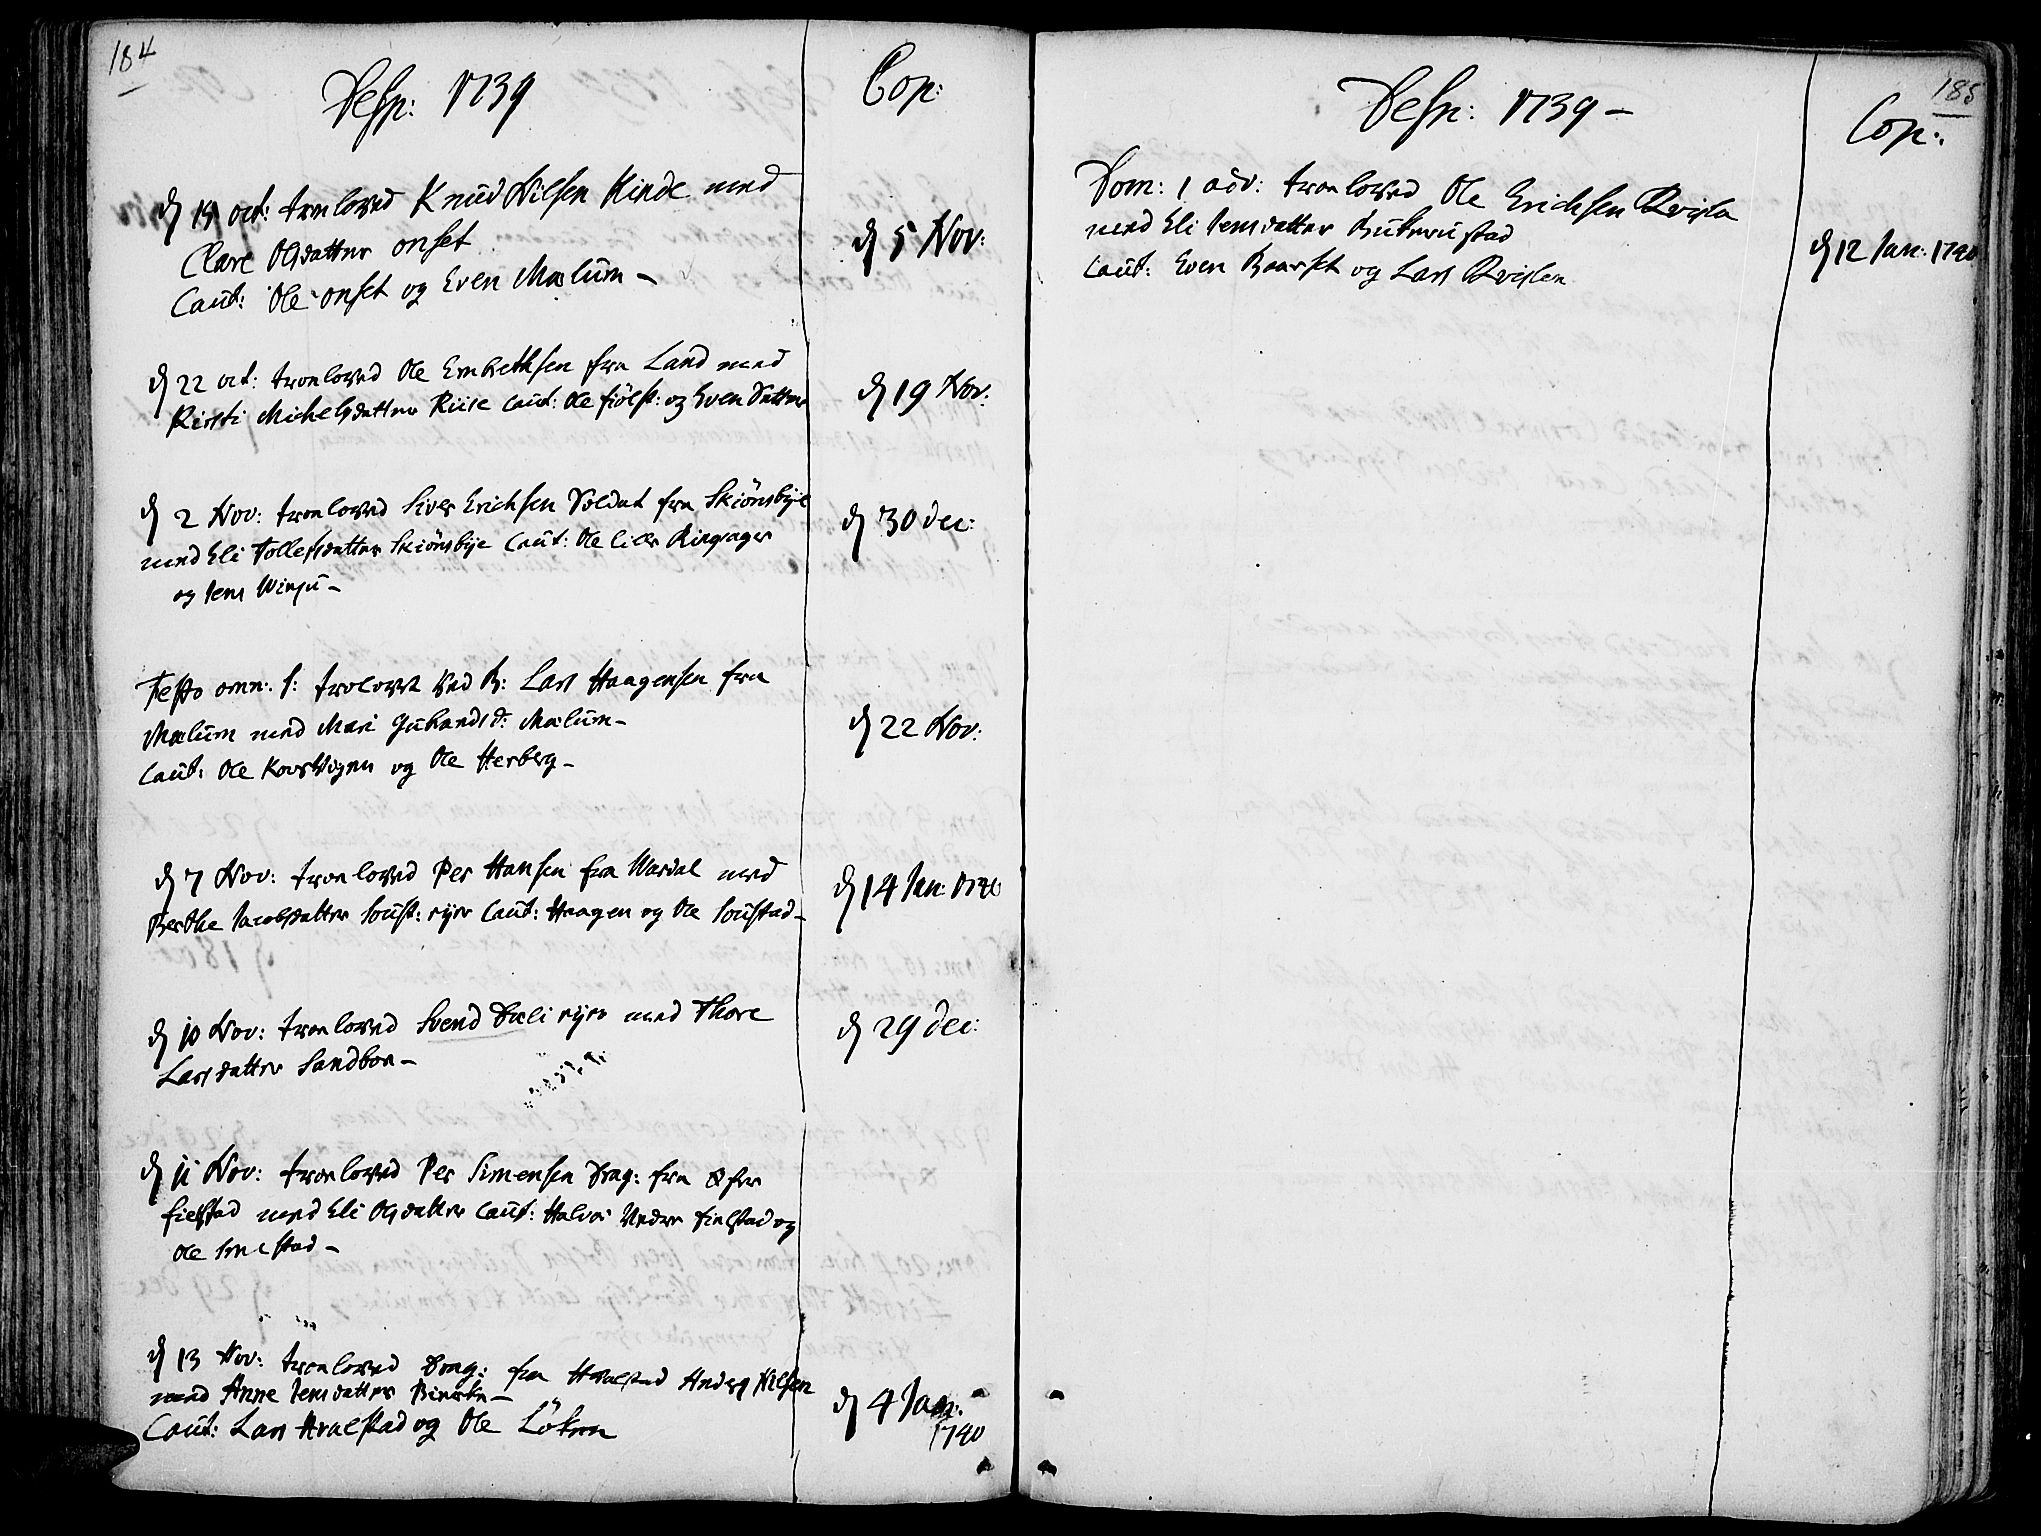 184
Desp: 1739
Cop:
d 19 oct: troeloved Knud Nilsen Kinde med
Clare Olsdatter onset
Caut: Ole onset og Even Mælum -
d 5 Nov:
d 22 oct: troeloved Ole Embrethsen fra Land med
Kirsti Michelsdatter Riise Caut: Ole fiölst: og Even Sætter
d 19 Nov:
d 2 Nov: troeloved Siver Erichsen Soldat fra Skiönsbye
med Eli Tollefsdatter Skiönsbye Caut: Ole Ringsager
og Jens Winju -
d 30 dec:
Festo omn: S: trolovet ved B: Lars Haagensen fra
Mælum med Mari Gulbrandsd: Mælum -
Caut: Ole og Ole Herberg -
d 22 Nov:
d 7 Nov: troeloved Per Hansen fra Wardal med
Berthe Jacobsdatter Soust: eyer Caut: Haagen og Ole Soustad -
d 14 Jan: 1740
d 10 Nov: troeloved Svend Dæli eyer med Thore
Larsdatter Sandboe -
d 29 dec:
d 11 Nov: troeloved Per Simensen Drag: fra öfre
fielstad med Eli Olsdatter Caut: Halvor Nedre fielstad og
Ole Smestad -
d 13 Nov: troeloved Drag: fra Hvalstad Anders Nilsen
med Anne Jensdatter Bierke -
Caut: Lars Hvalstad og Ole Löken
d 4 Jan:
1740
185
Desp: 1739 -
Cop:
Dom: 1 adv: troeloved Ole Erichsen Qvisla
med Eli Jensdatter
Caut: Even Baarset og Lars Qvislen
d 12 Jan: 1740